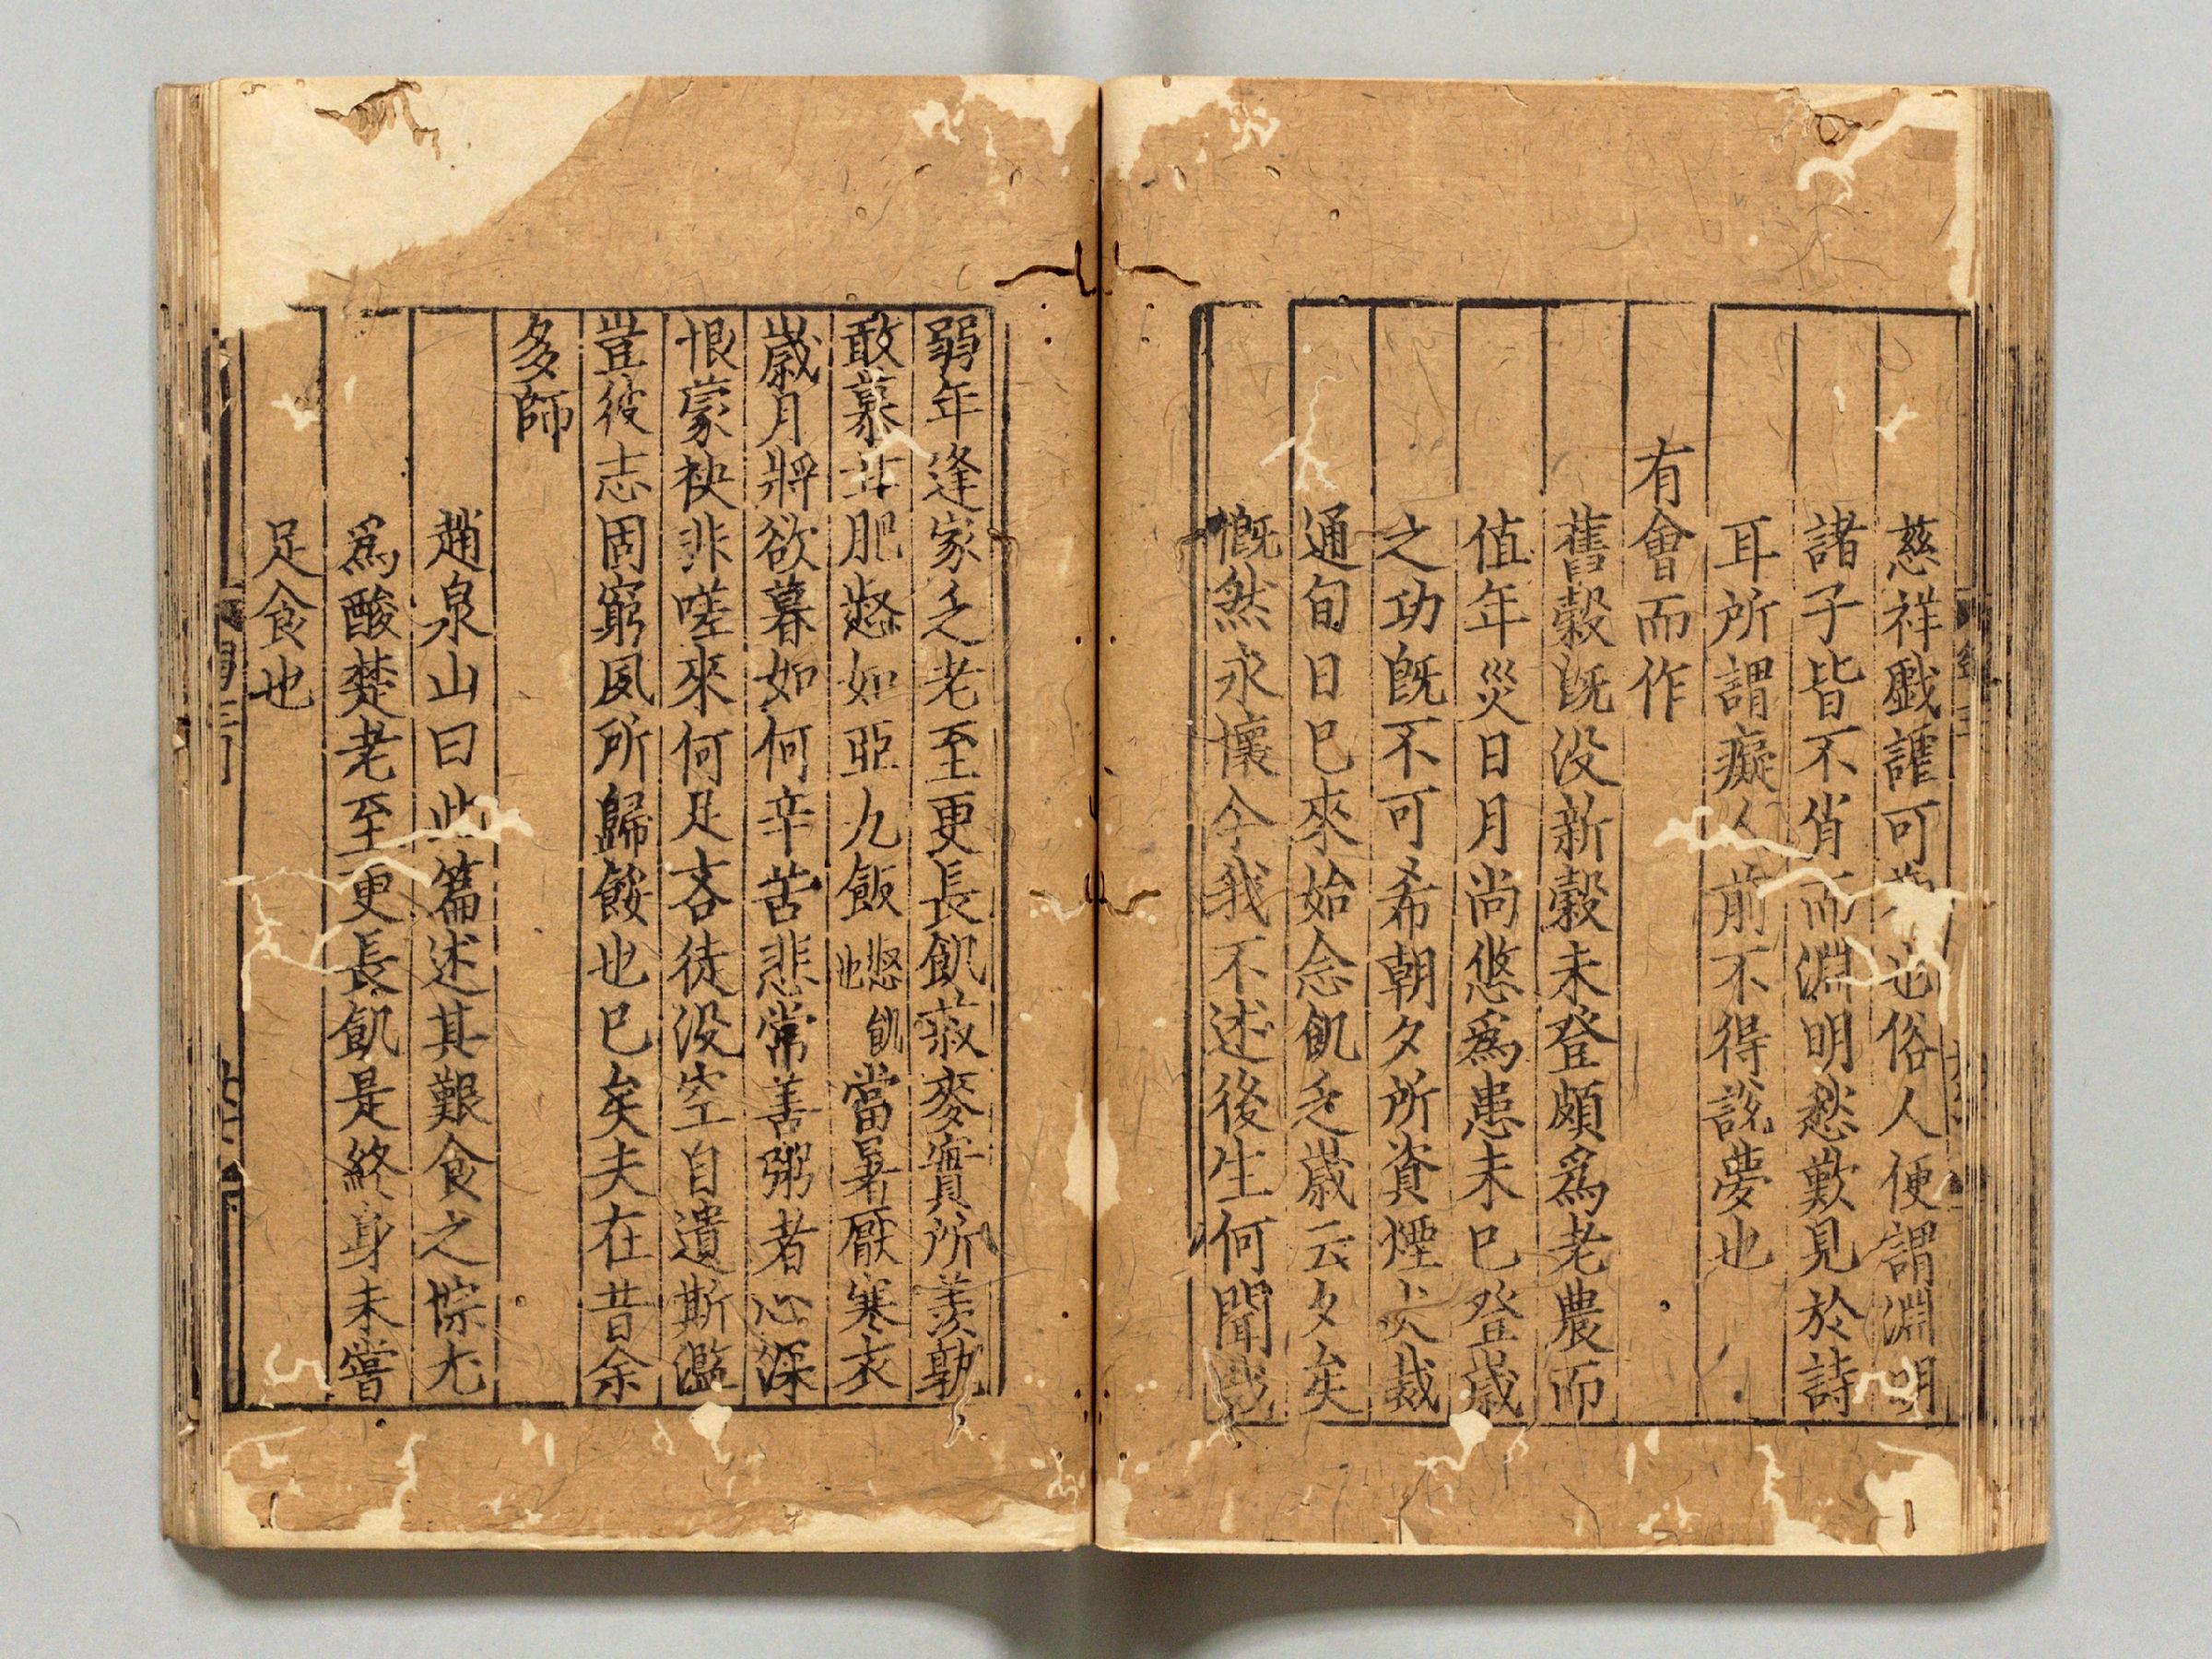 慈祥戲謔可觀也俗人便謂淵明
諸子皆不肖而淵明愁歎見於詩
耳所謂癡人前不得說夢也
有會而作
舊穀旣没新穀未登頗爲老農而
值年災日月尚悠爲患未已登歲
之功旣不可希朝夕所資煙火裁
通旬日已來始念飢乏歲云夕矣
慨然永懷今我不述後生何聞哉
弱年逢家乏老至更長飢菽麥實所羨孰
敢慕甘肥惄如亞九飯惄飢也當暑厭寒衣
歲月將欲暮如何辛苦悲常善粥者心深
恨蒙袂非嗟來何足吝徒没空自遺斯濫
豈彼志固窮夙所歸餒也已矣夫在昔余
多師
趙泉山曰此篇述其艱食之悰尤
爲酸楚老至更長飢是終身未嘗
足食也